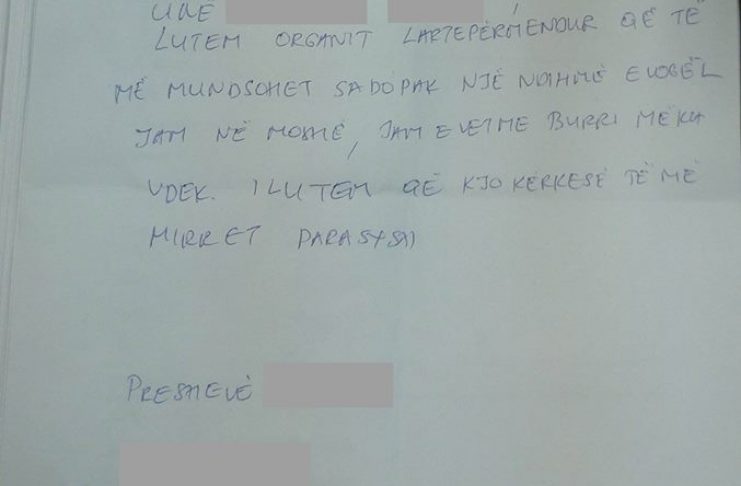 UNË
LUTEM ORGANIT LARTEPËRMENDUR QË TË
MË MUNDSOHET SADOPAK NJË NDIHMË E VOGËL
JAM NË MOSHË, JAM E VETME BURRI MË KA
VDEK. I LUTEM QË KJO KËRKESË TË MË
MIRRET PARASYSH
PRESHEVË